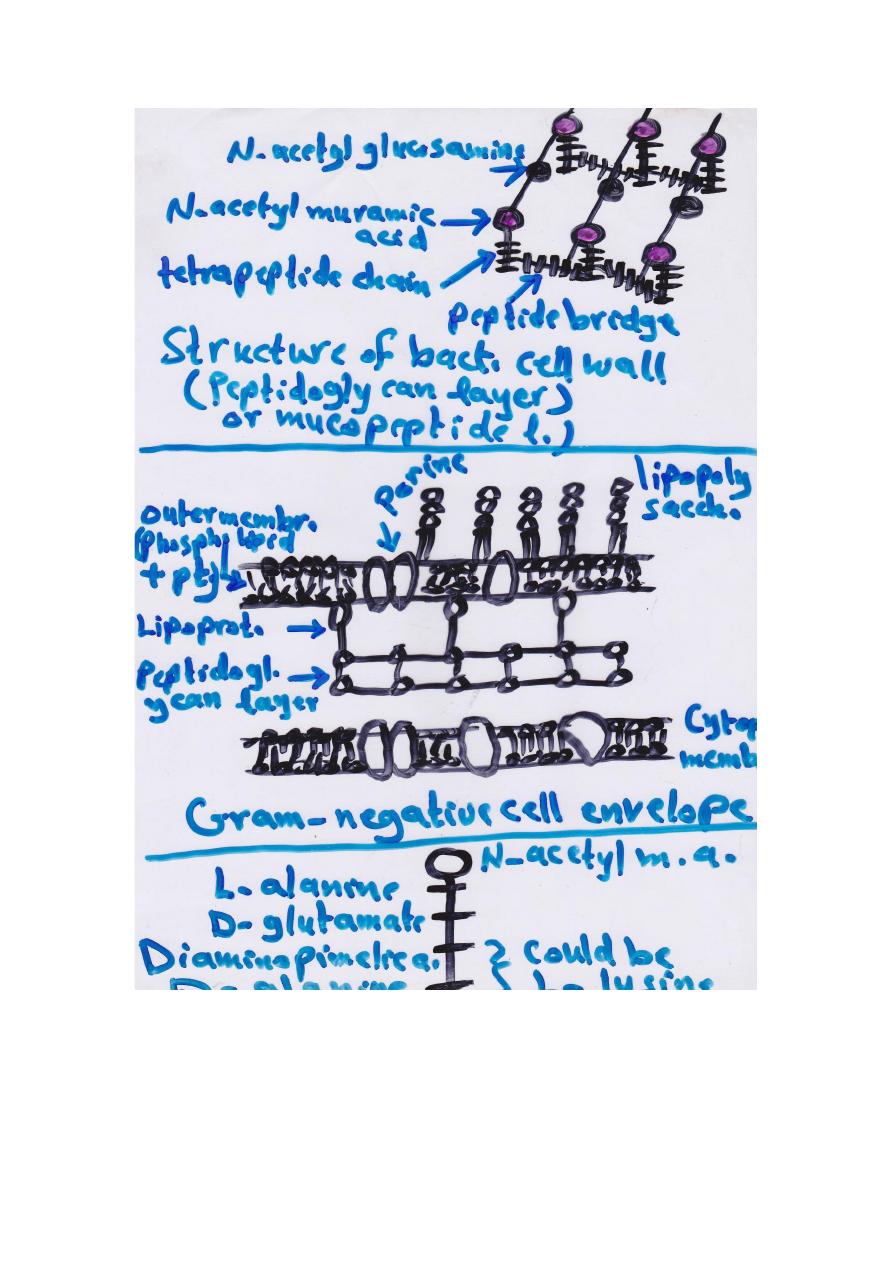 N-acetyl glucosamine
N-acetyl muramic
acid
tetrapeptide chain
peptide bridge
Structure of bact. cell wall
(Peptidogly can layer)
or mucopeptide l.)
Porine
lipopoly
sacch.
outer membr.
(phospholipid
+ pt)
Lipoprot.
Peptidogl.
ycan layer
Cytop
memb
Gram-negative cell envelope
N-acetyl m.a.
L-alanine
D-glutamate
Diaminopimelic a.
} could be
D-alanine
be lysine